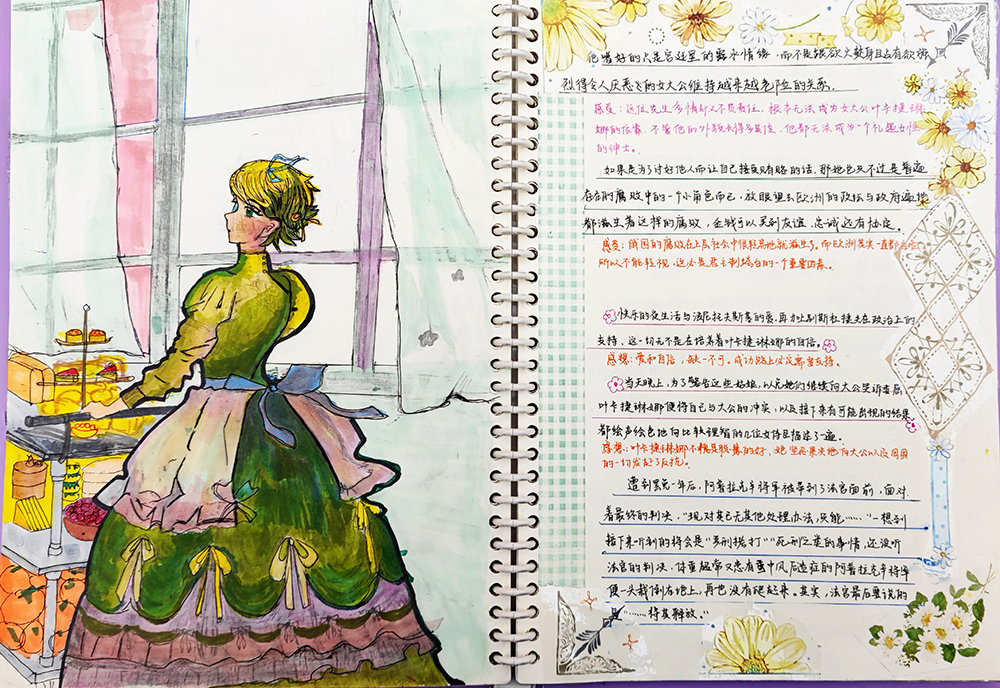 他嗜好的只是宫廷里的露水情缘，而不是跟欲火焚身且占有欲强
烈得令人厌恶的女大公维持越来越危险的关系。
感受：这位先生多情却又不负责任，根本无法成为女大公叶卡捷琳
娜的依靠，不管他的外貌长得多英俊，他都无法成为一个礼遇女性
的绅士。
如果是为了讨好他人而让自己接受贿赂的话，那她也只不过是普遍
存在的腐败中的一个小角色而已，放眼望去欧洲的政坛与政府遍地
都滋生着这样的腐败，金钱可以买到友谊，忠诚还有协定。
感受：俄国的腐败在上层社会中很轻易地就滋生了，而欧洲其实一直都
所以不能轻视，这必是君主制垮台的一个重要因素。
快乐的夜生活与波尼拉夫斯基的爱，再加上别斯杜捷夫在政治上的
支持，这一切无不是在培养着叶卡捷琳娜的自信。
感想：爱和自信，缺一不可。成功路上必定都需支持。
当天晚上，为了警告这些姑娘，以免她们继续向大公哭诉
叶卡捷琳娜便将自己与大公的冲突，以及接下来有可能出现的结果
都绘声绘色地向比较理智的几位女侍臣描述了一遍。
感想：叶卡捷琳娜不愧是
的一切发起了反抗。
遭到罢免一年后，阿普拉克辛将军被带到了法官面前，面对
着最终的判决，“现对其已无其他处理办法，只能……”一想到
接下来听到的将会是“严刑拷打”“死刑之类的事情，还没听
法官的判决，体重超常又患有中风后遗症的阿普拉克辛将军
便一头栽倒在地上，再也没有爬起来。其实，法官最后要说的
是“……将其释放。”